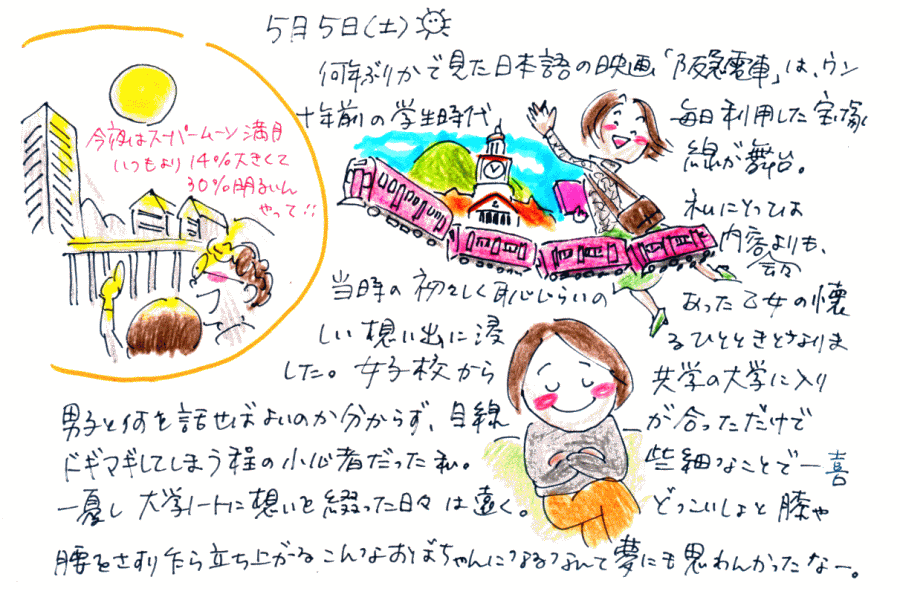 5月5日(土)
何年ぶりかで見た日本語の映画「阪急電車」は、ウン
十年前の学生時代 毎日利用した宝塚
線が舞台。
私にとっては
内容よりも、
当時の初々しく恥じらいの あった乙女の懐
しい想い出に浸 るひとときとなりま
した。女子校から 共学の大学に入り
男子と何を話せばよいのか分からず、目線 が合っただけで
ドギマギしてしまう程の小心者だった私。 些細なことで一喜
一憂し大学ノートに想いを綴った日々は遠く。 どっこいしょと膝や
腰をさすり乍ら立ち上がるこんなおばちゃんになるなんて夢にも思わんかったなー。
今夜はスーパームーン満月
いつもより14%大きくて
30%明るいん
やって!!